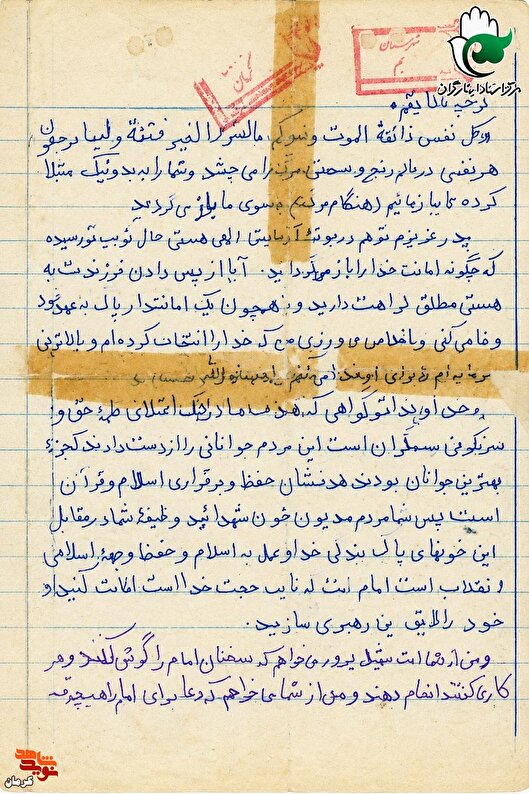 مرکز اسناد ایثارگران
شهرستان
بم
کرمان
کل نفس ذائقة الموت و نبلوکم بالشر و الخیر فتنة و الینا ترجعون
هر نفسی در عالم رنج و سختی مرگ را می چشد و شما را به بد و نیک مبتلا
کرده تا بیازمائیم و هنگام مرگ به سوی ما باز می گردید
پدر عزیزم تو هم در بوته آزمایش الهی هستی حال نوبت تو رسیده
که چگونه امانت خدا را باز می گردانید. آیا از پس دادن فرزندت به
هستی مطلق کراهت دارید و یا همچون یک امانتدار پاک به عهد خود
وفا می کنی و با اخلاص می ورزی من که خدا را انتخاب کرده ام و بالاترین
سرمایه ام را برای او
خداوندا تو گواهی که هدف ما اعتلای کلمه حق و
سرنگونی ستمگران است این مردم جوانانی را از دست دادند که جزء
بهترین جوانان بودند هدفشان حفظ و برقراری اسلام و قرآن
است پس شما مردم مدیون خون شهدائید وظیفه شما در مقابل
این خونهای پاک بندگی خدا و عمل به اسلام و حفظ وجهه اسلامی
انقلاب است امام امت که نایب حجت خدا است اطاعت کنید و
خود را لایق این رهبری سازید.
و من از شما امت شهید پرور می خواهم که سخنان امام را گوش کنند و هر
کاری کنند انجام دهند و من از شما می خواهم که دعا برای امام را هیچوقت
شاهد
نوید
کرمان